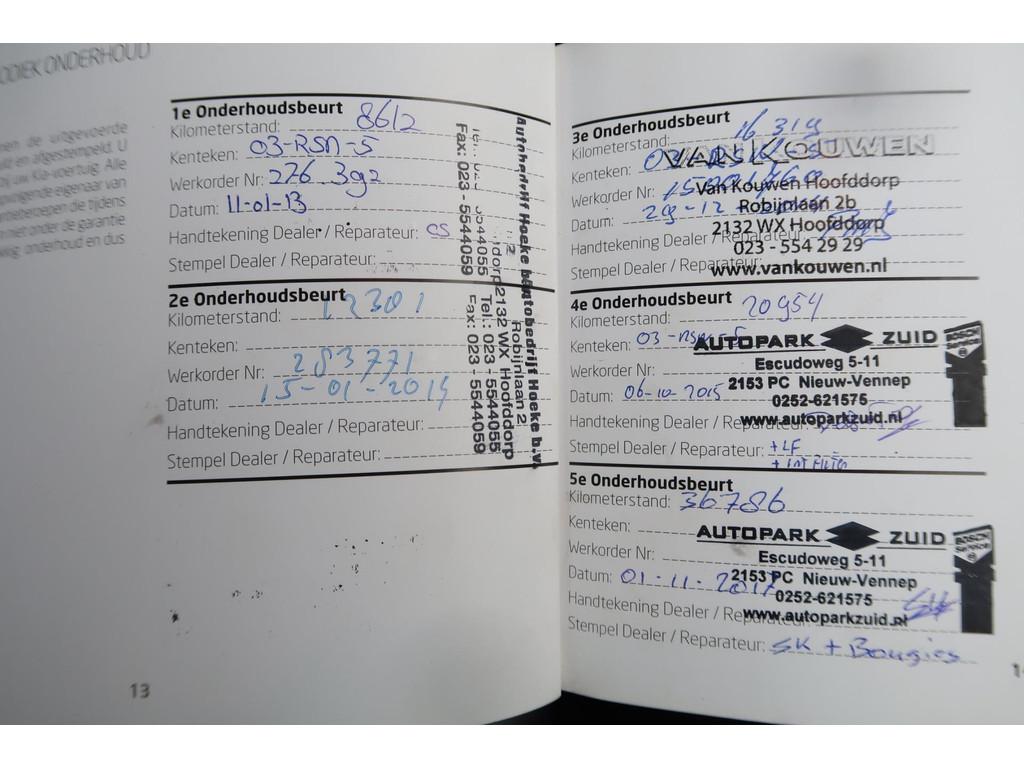 ODIEK ONDERHOUD
nen de uitgevoerde
ld en afgestempeld. U
bij uw Kia-voertuig. Alle
opvolgende eigenaar van
nbeteroepen die tijdens
n niet onder de garantie
weg, onderhoud en dus
1e Onderhoudsbeurt
Kilometerstand: 8612
Kenteken: 03-RSN-5
Werkorder Nr: 276 392
Datum: 11-01-13
Handtekening Dealer / Reparateur: CS
Stempel Dealer / Reparateur:
2e Onderhoudsbeurt
Kilometerstand: 12301
Kenteken:
Werkorder Nr: 283771
Datum: 15-01-2014
Handtekening Dealer / Reparateur:
Stempel Dealer / Reparateur:
Autobedrijf Hoeke b.v.
Robijnlaan 2
2132 WX Hoofddorp
Tel.: 023 - 5544055
Fax: 023 - 5544059
Fax: 023 - 5544059
13
3e Onderhoudsbeurt
Kilometerstand: 16319
Kenteken:
Werkorder Nr:
Datum: 29-12
Handtekening Dealer / Reparateur:
Stempel Dealer / Reparateur:
VAN KOUWEN
Van Kouwen Hoofddorp
Robijnlaan 2b
2132 WX Hoofddorp
023 - 554 29 29
www.vankouwen.nl
4e Onderhoudsbeurt
Kilometerstand: 20954
Kenteken: 03-RSN-5
Werkorder Nr:
Datum: 06-10-2015
Handtekening Dealer / Reparateur:
Stempel Dealer / Reparateur: +LF
+ INT FILTER
AUTOPARK ZUID
Escudoweg 5-11
2153 PC Nieuw-Vennep
0252-621575
www.autoparkzuid.nl
BOSCH
Service
5e Onderhoudsbeurt
Kilometerstand: 36786
Kenteken:
Werkorder Nr:
Datum: 01-11-2017
Handtekening Dealer / Reparateur:
Stempel Dealer / Reparateur: SK + Bougies
AUTOPARK ZUID
Escudoweg 5-11
2153 PC Nieuw-Vennep
0252-621575
www.autoparkzuid.nl
BOSCH
Service